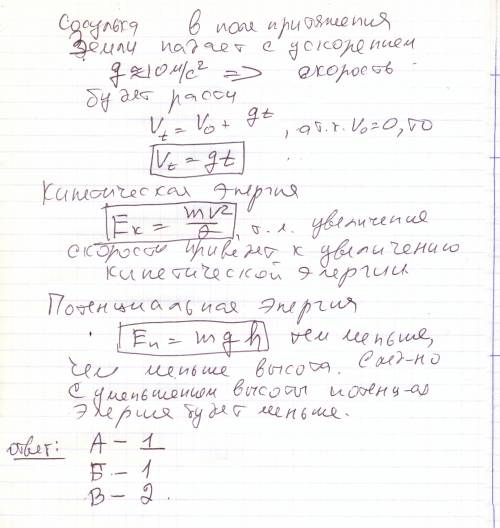 Сосулька в поле притяжения
Земли падает с ускорением
g≈10 м/с² => скорость
будет расти
Vt = V₀ + gt, а т.к. V₀=0, то
Vt = gt
Кинетическая энергия
Eк = mv²/2, т.е. увеличение
скорости приведет к увеличению
кинетической энергии.
Потенциальная энергия
Eп = mgh тем меньше,
чем меньше высота. След-но
с уменьшением высоты потенц-ая
энергия будет меньше.
ответ: А – 1
Б – 1
В – 2.